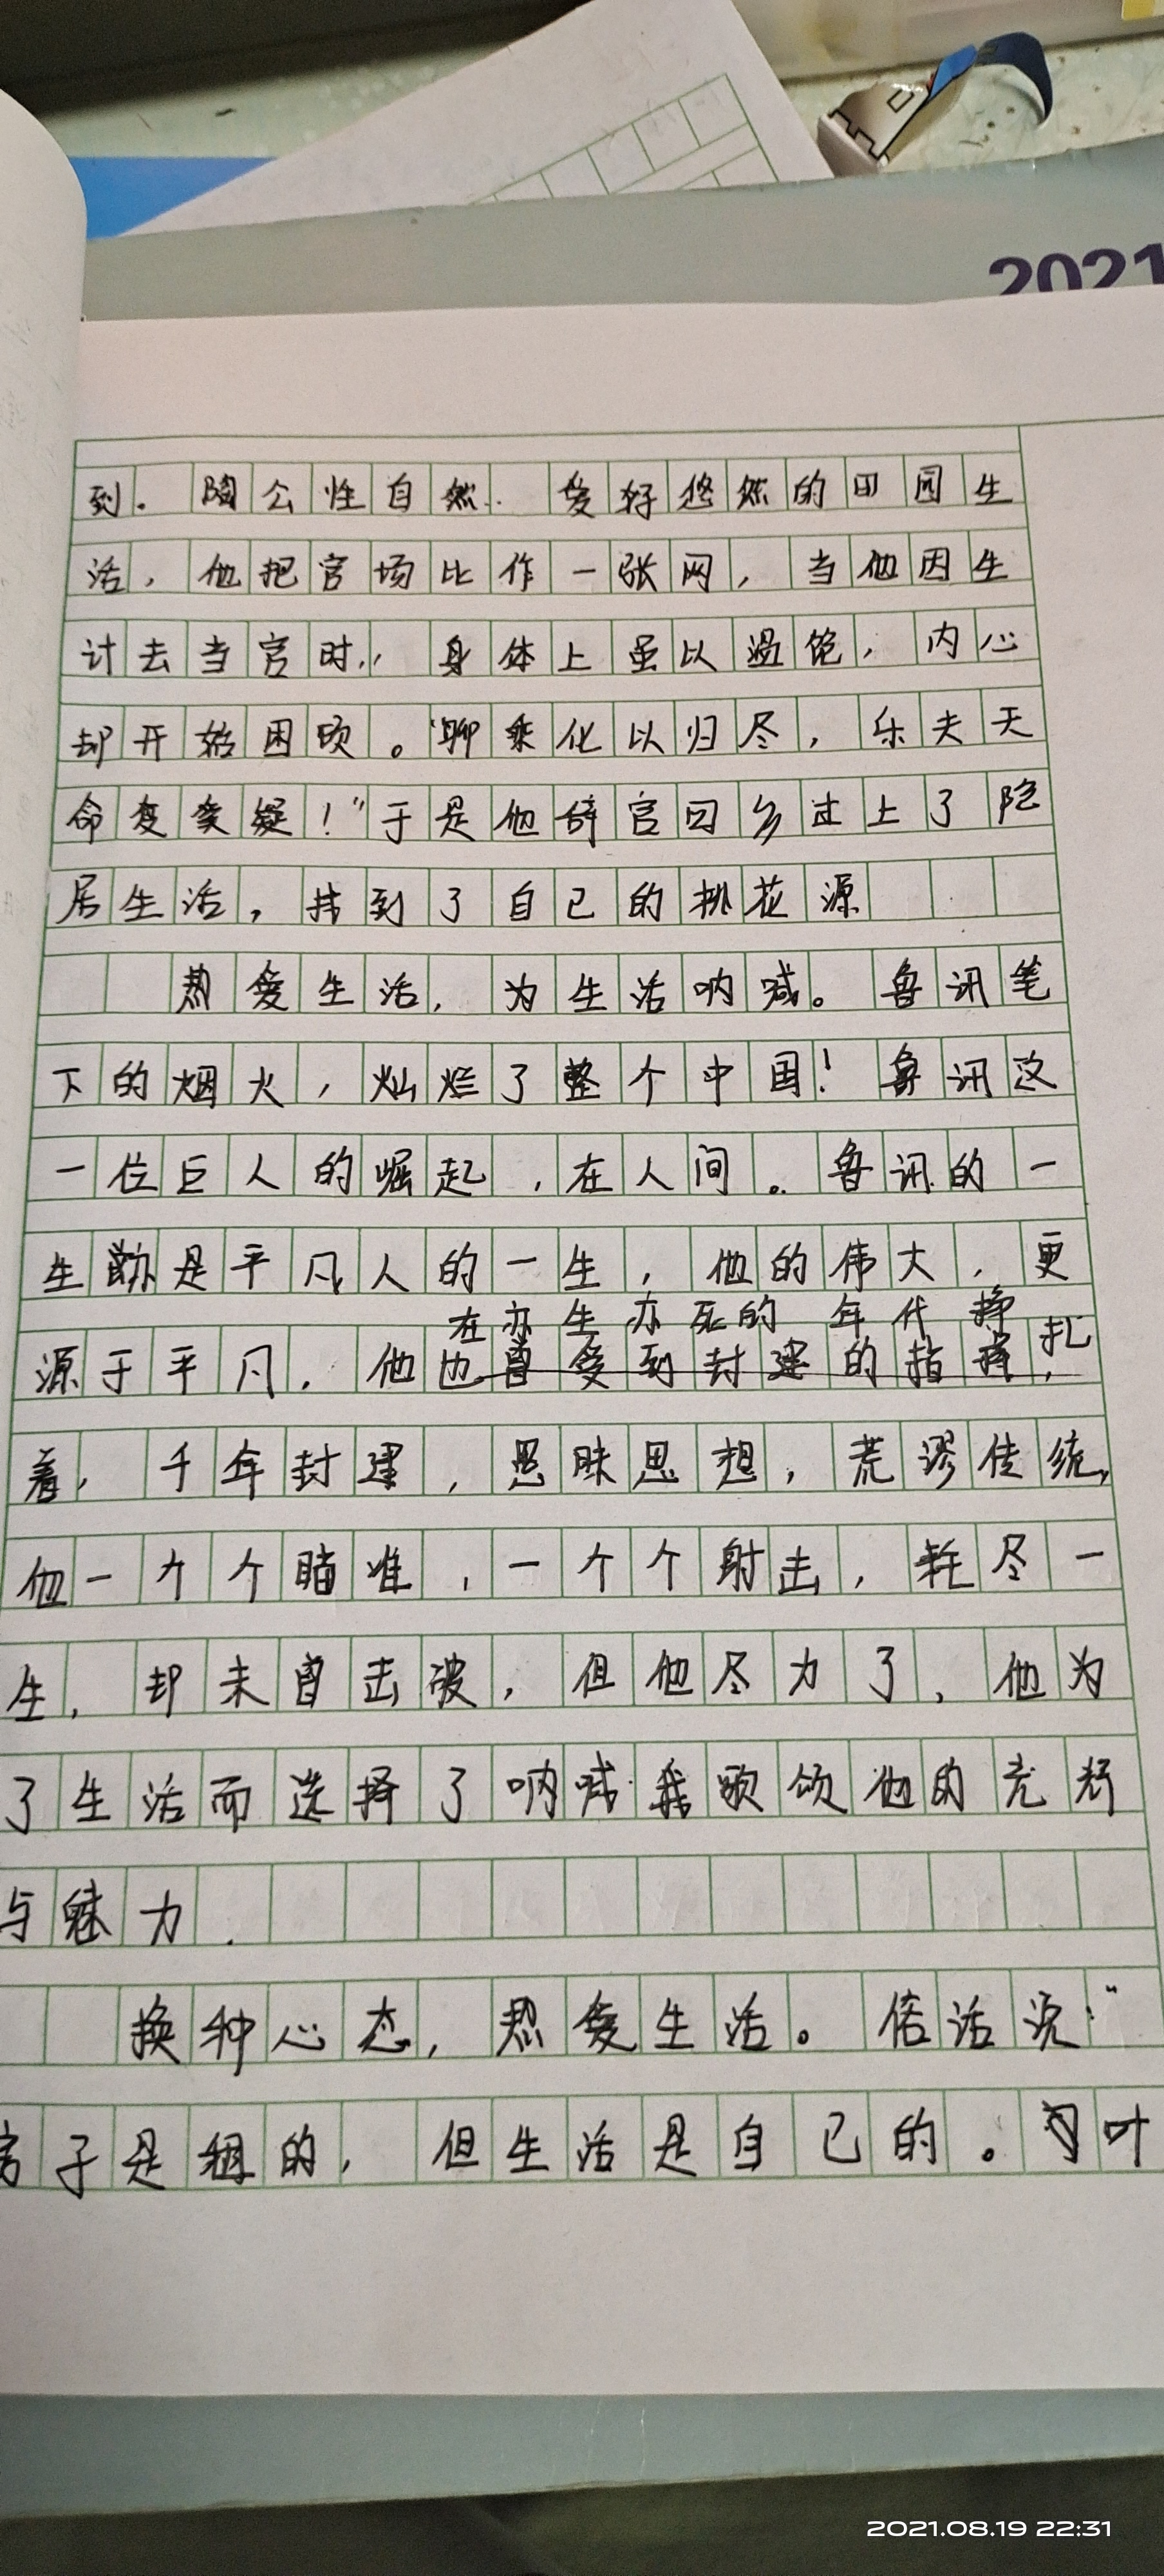 2021
到。陶公性自然. 爱好悠然的田园生
活,他把官场比作一张网,当他因生
计去当官时,身体上虽以温饱,内心
却开始困顿。“聊乘化以归尽,乐夫天
命复奚疑!”于是他辞官回乡过上了隐
居生活,找到了自己的桃花源
热爱生活,为生活呐喊。鲁讯笔
下的烟火,灿烂了整个中国!鲁讯这
一位巨人的崛起,在人间。鲁讯的一
生亦是平凡人的一生,他的伟大,更
在亦生亦死的年代挣扎
源于平凡.他也曾受到封建的指择,
着,千年封建,愚昧思想,荒谬传统,
他一个个瞄准,一个个射击,耗尽一
生,却未曾击破,但他尽力了,他为
了生活而选择了呐喊.我歌颂他的光辉
与魅力.
换种心态,热爱生活。俗话说:“
房子是租的,但生活是自己的。叶
2021.08.19 22:31